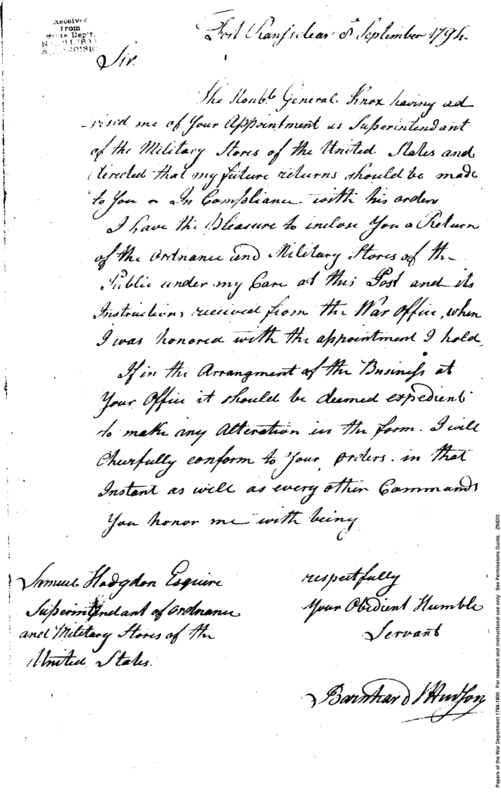 Received
from
State Dep't.
Fort Ranfselear 8 September 1794.
Sir.
The Honbl. General Knox having ad
vised me of Your Appointment as Superintendant
of the Military Stores of the United States and
directed that my future returns should be made
to You - In Compliance with his orders
I have the Pleasure to inclose You a Return
of the Ordnance and Military Stores of the
Public under my Care at this Post and its
Instructions received from the War Office, when
I was honored with the appointment I hold,
If in the Arrangment of the Businefs at
Your Office it should be deemed expedient
to make any Alteration in the form. I will
Chearfully conform to Your Orders. in that
Instant as well as every other Commands
You honor me with being
Samuel Hodgdon Esquire
Superintendant of Ordnance
and Military Stores of the
United States.
respectfully
Your Obedient Humble
Servant
Barnhard Hudson
Papers of the War Department 1784-1800. For research and instructional use only. See Permissions Guide. ZNE03